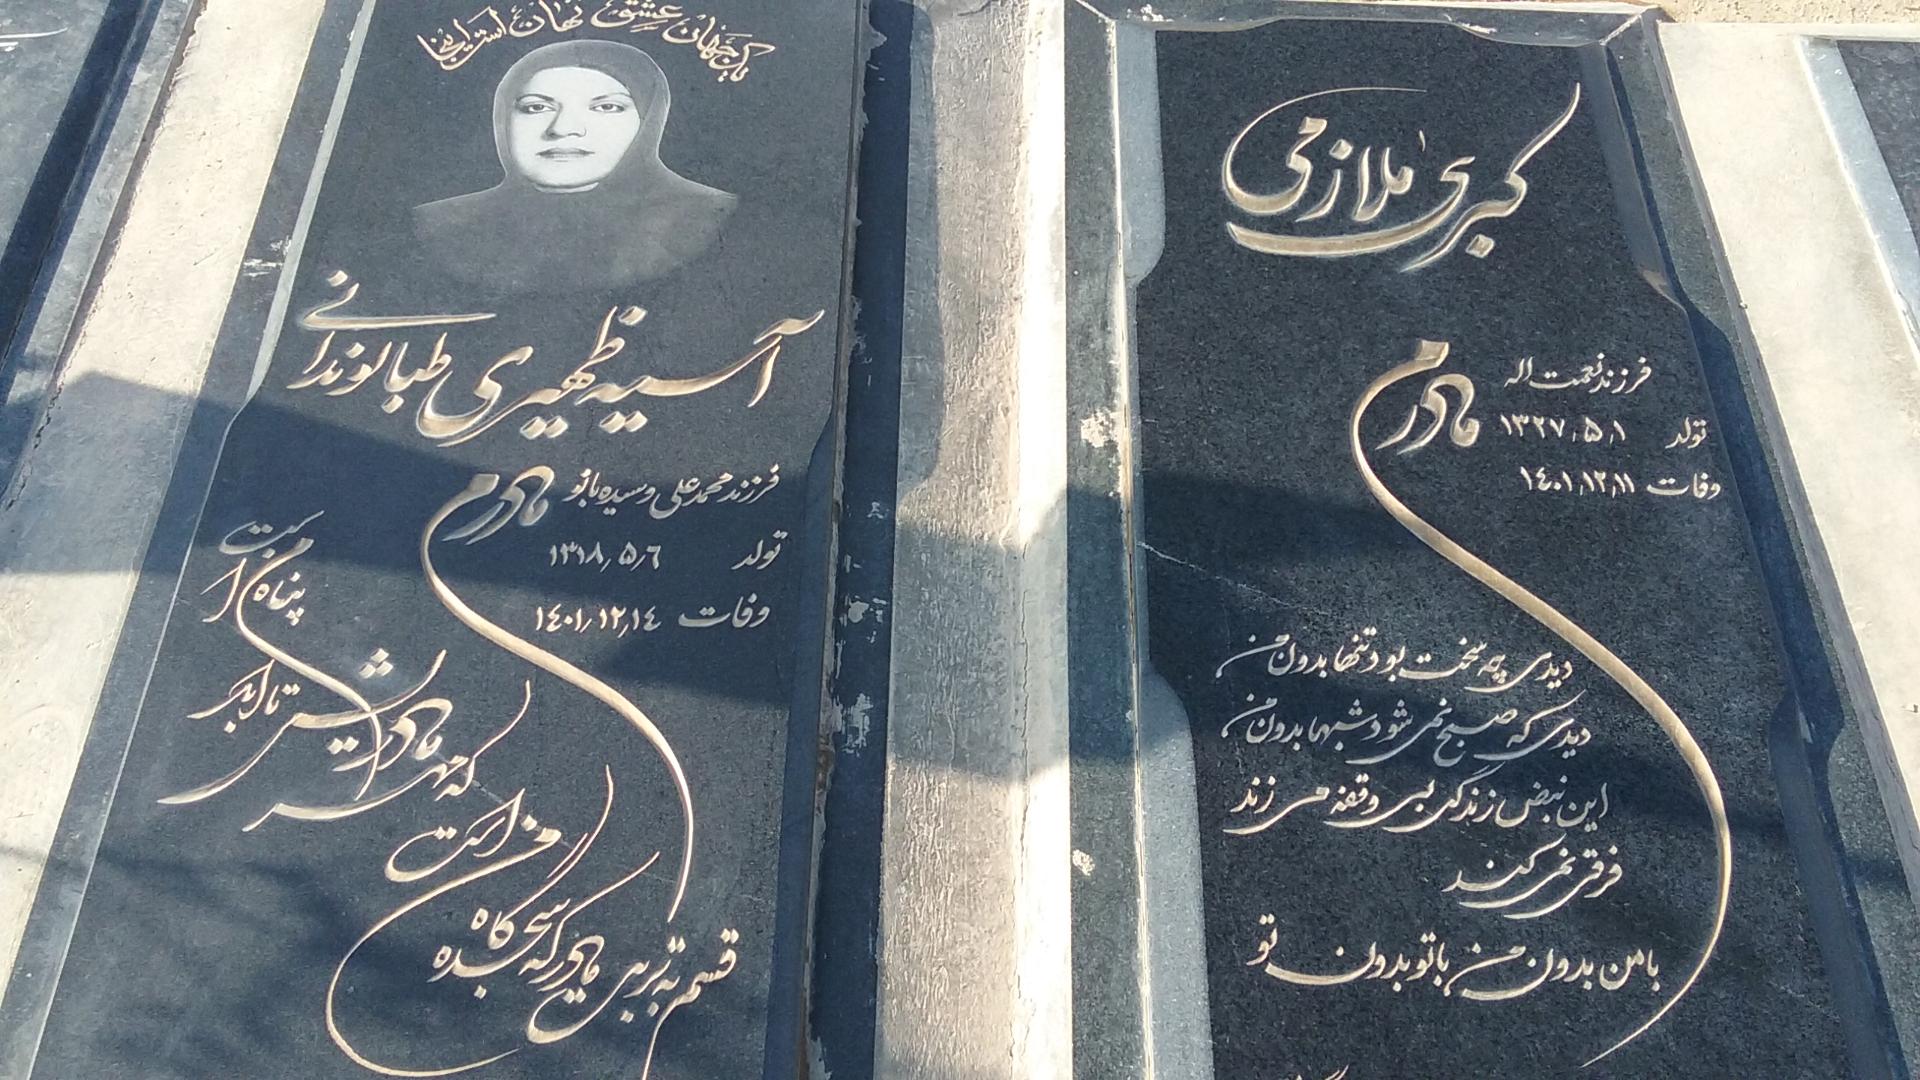 یک جهان عشق نهان است اینجا
آسیه ظهیری طبالوندانی
فرزند محمدعلی و سیده بانو
مادرم
تولد ۱۳۱۸٫۵٫۶
وفات ۱۴۰۱٫۱۲٫۱۴
قسم به تربت مادر که سجده گاه
من است
که مهر مادریش تا ابد
پناه من است
کبری ملازمی
فرزند نعمت اله
مادرم
تولد ۱۳۲۷٫۵٫۱
وفات ۱۴۰۱٫۱۲٫۱۱
دیدی چه سخت بود تنها بدون من
دیدی که صبح نمی شود شبها بدون من
این نبض زندگی بی وقفه می زند
فرقی نمی کند
با من بدون من با تو بدون تو